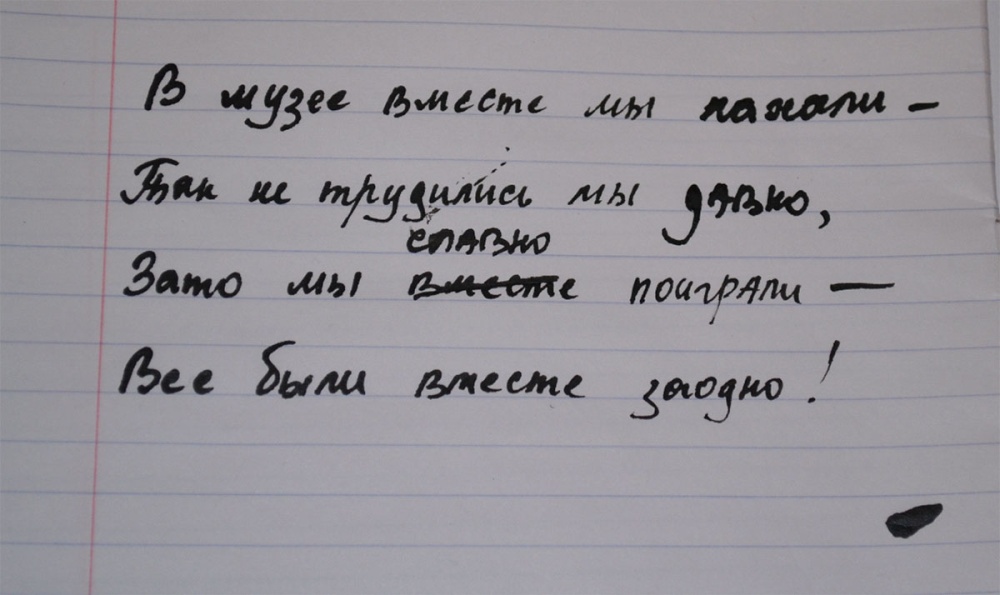 В музее вместе мы пахали –
Так не трудились мы давно,
славно
Зато мы вместе поиграли —
Все были вместе заодно!